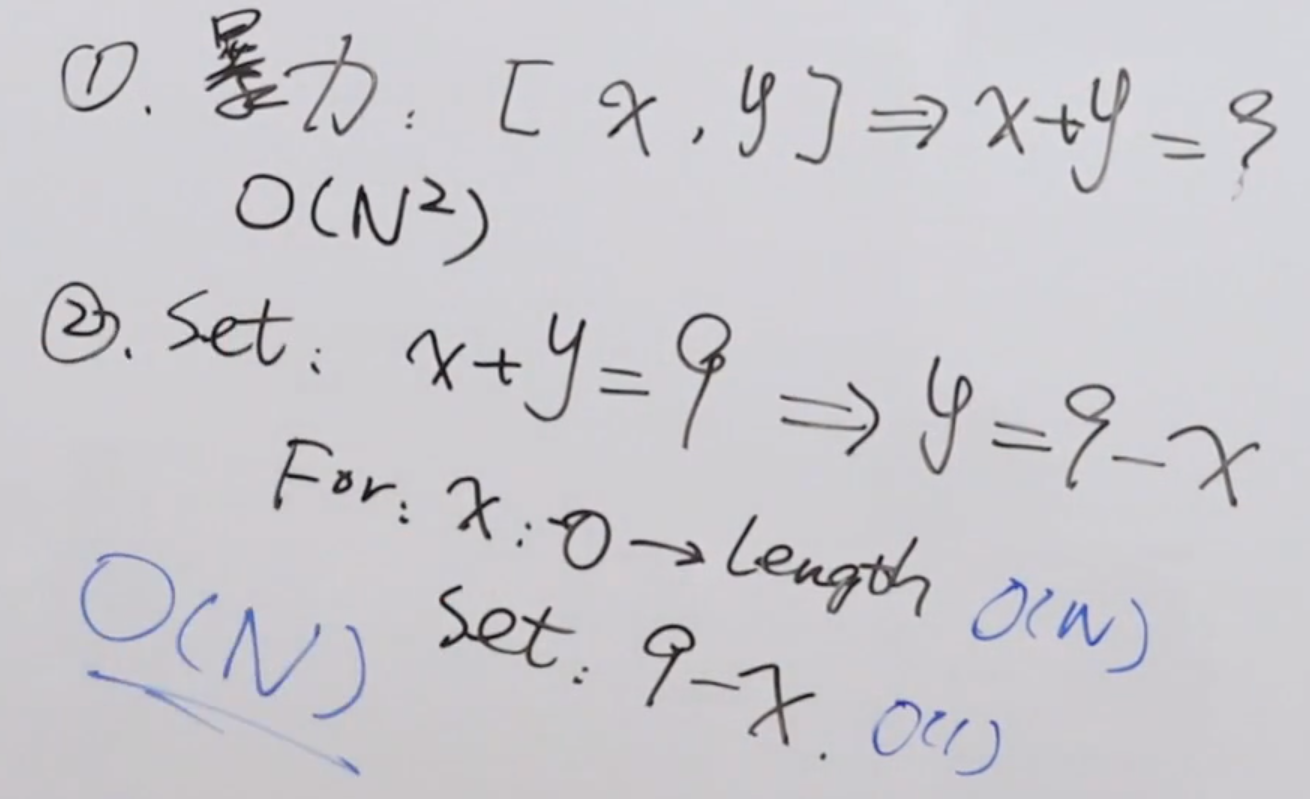 ①. 暴力: [x, y] ⇒ x+y=9
O(N²)
②. Set: x+y=9 ⇒ y=9-x
For: x: 0 → Length O(N)
Set: 9-x. O(1)
O(N)